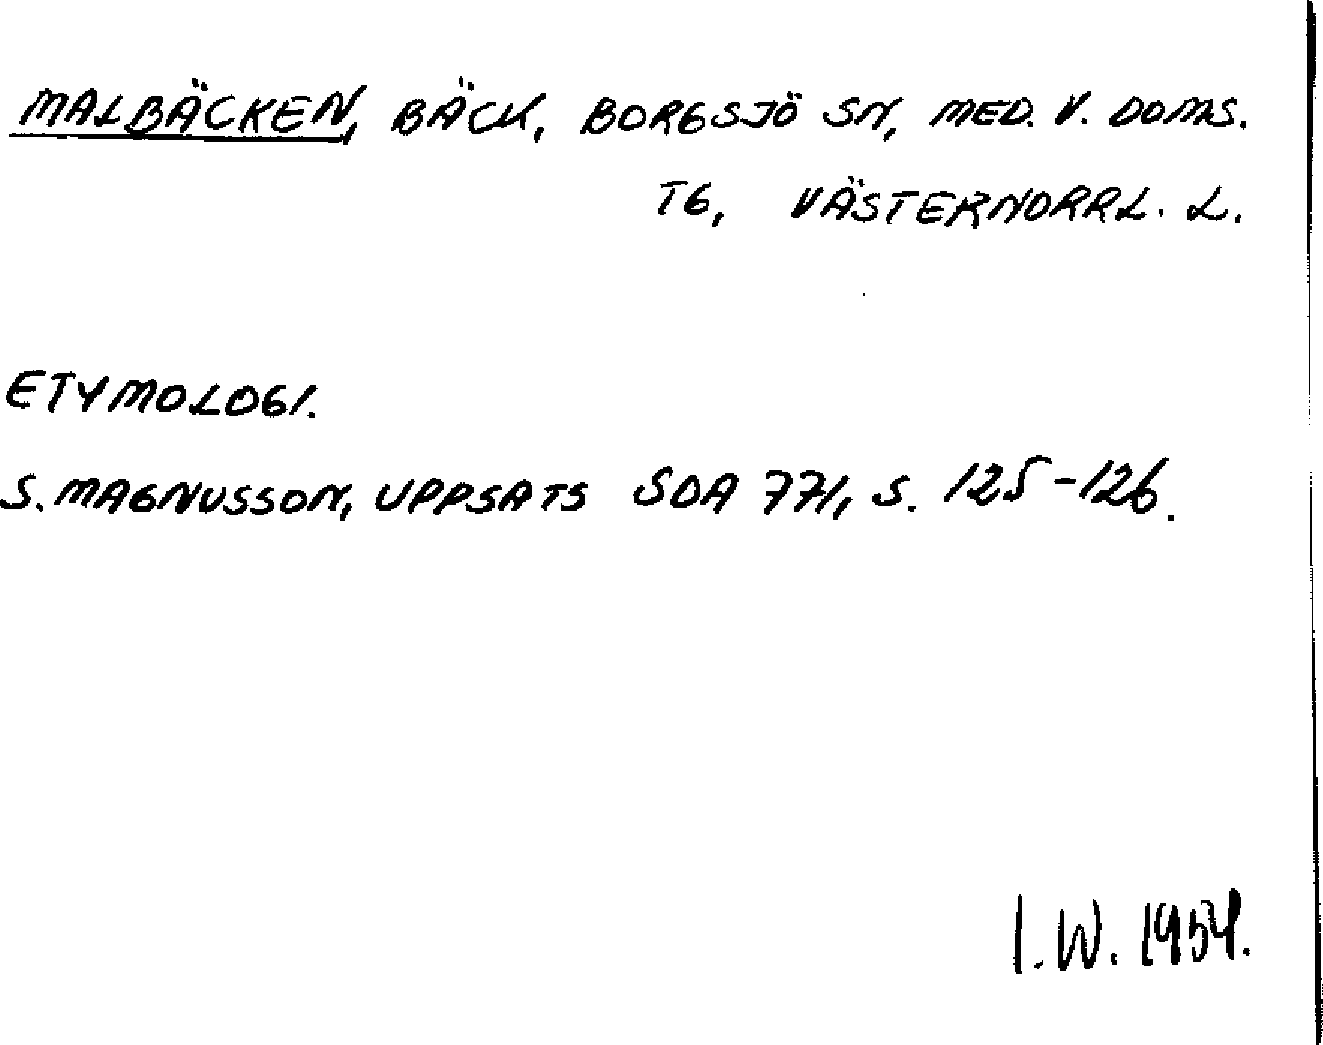 MALBÄCKEN, BÄCK, BORGSJÖ SN, MED. V. DOMS.
TG, VÄSTERNORRL. L.
ETYMOLOGI.
S. MAGNUSSON, UPPSATS SOA 771, S. 125-126.
I.W. 1954.